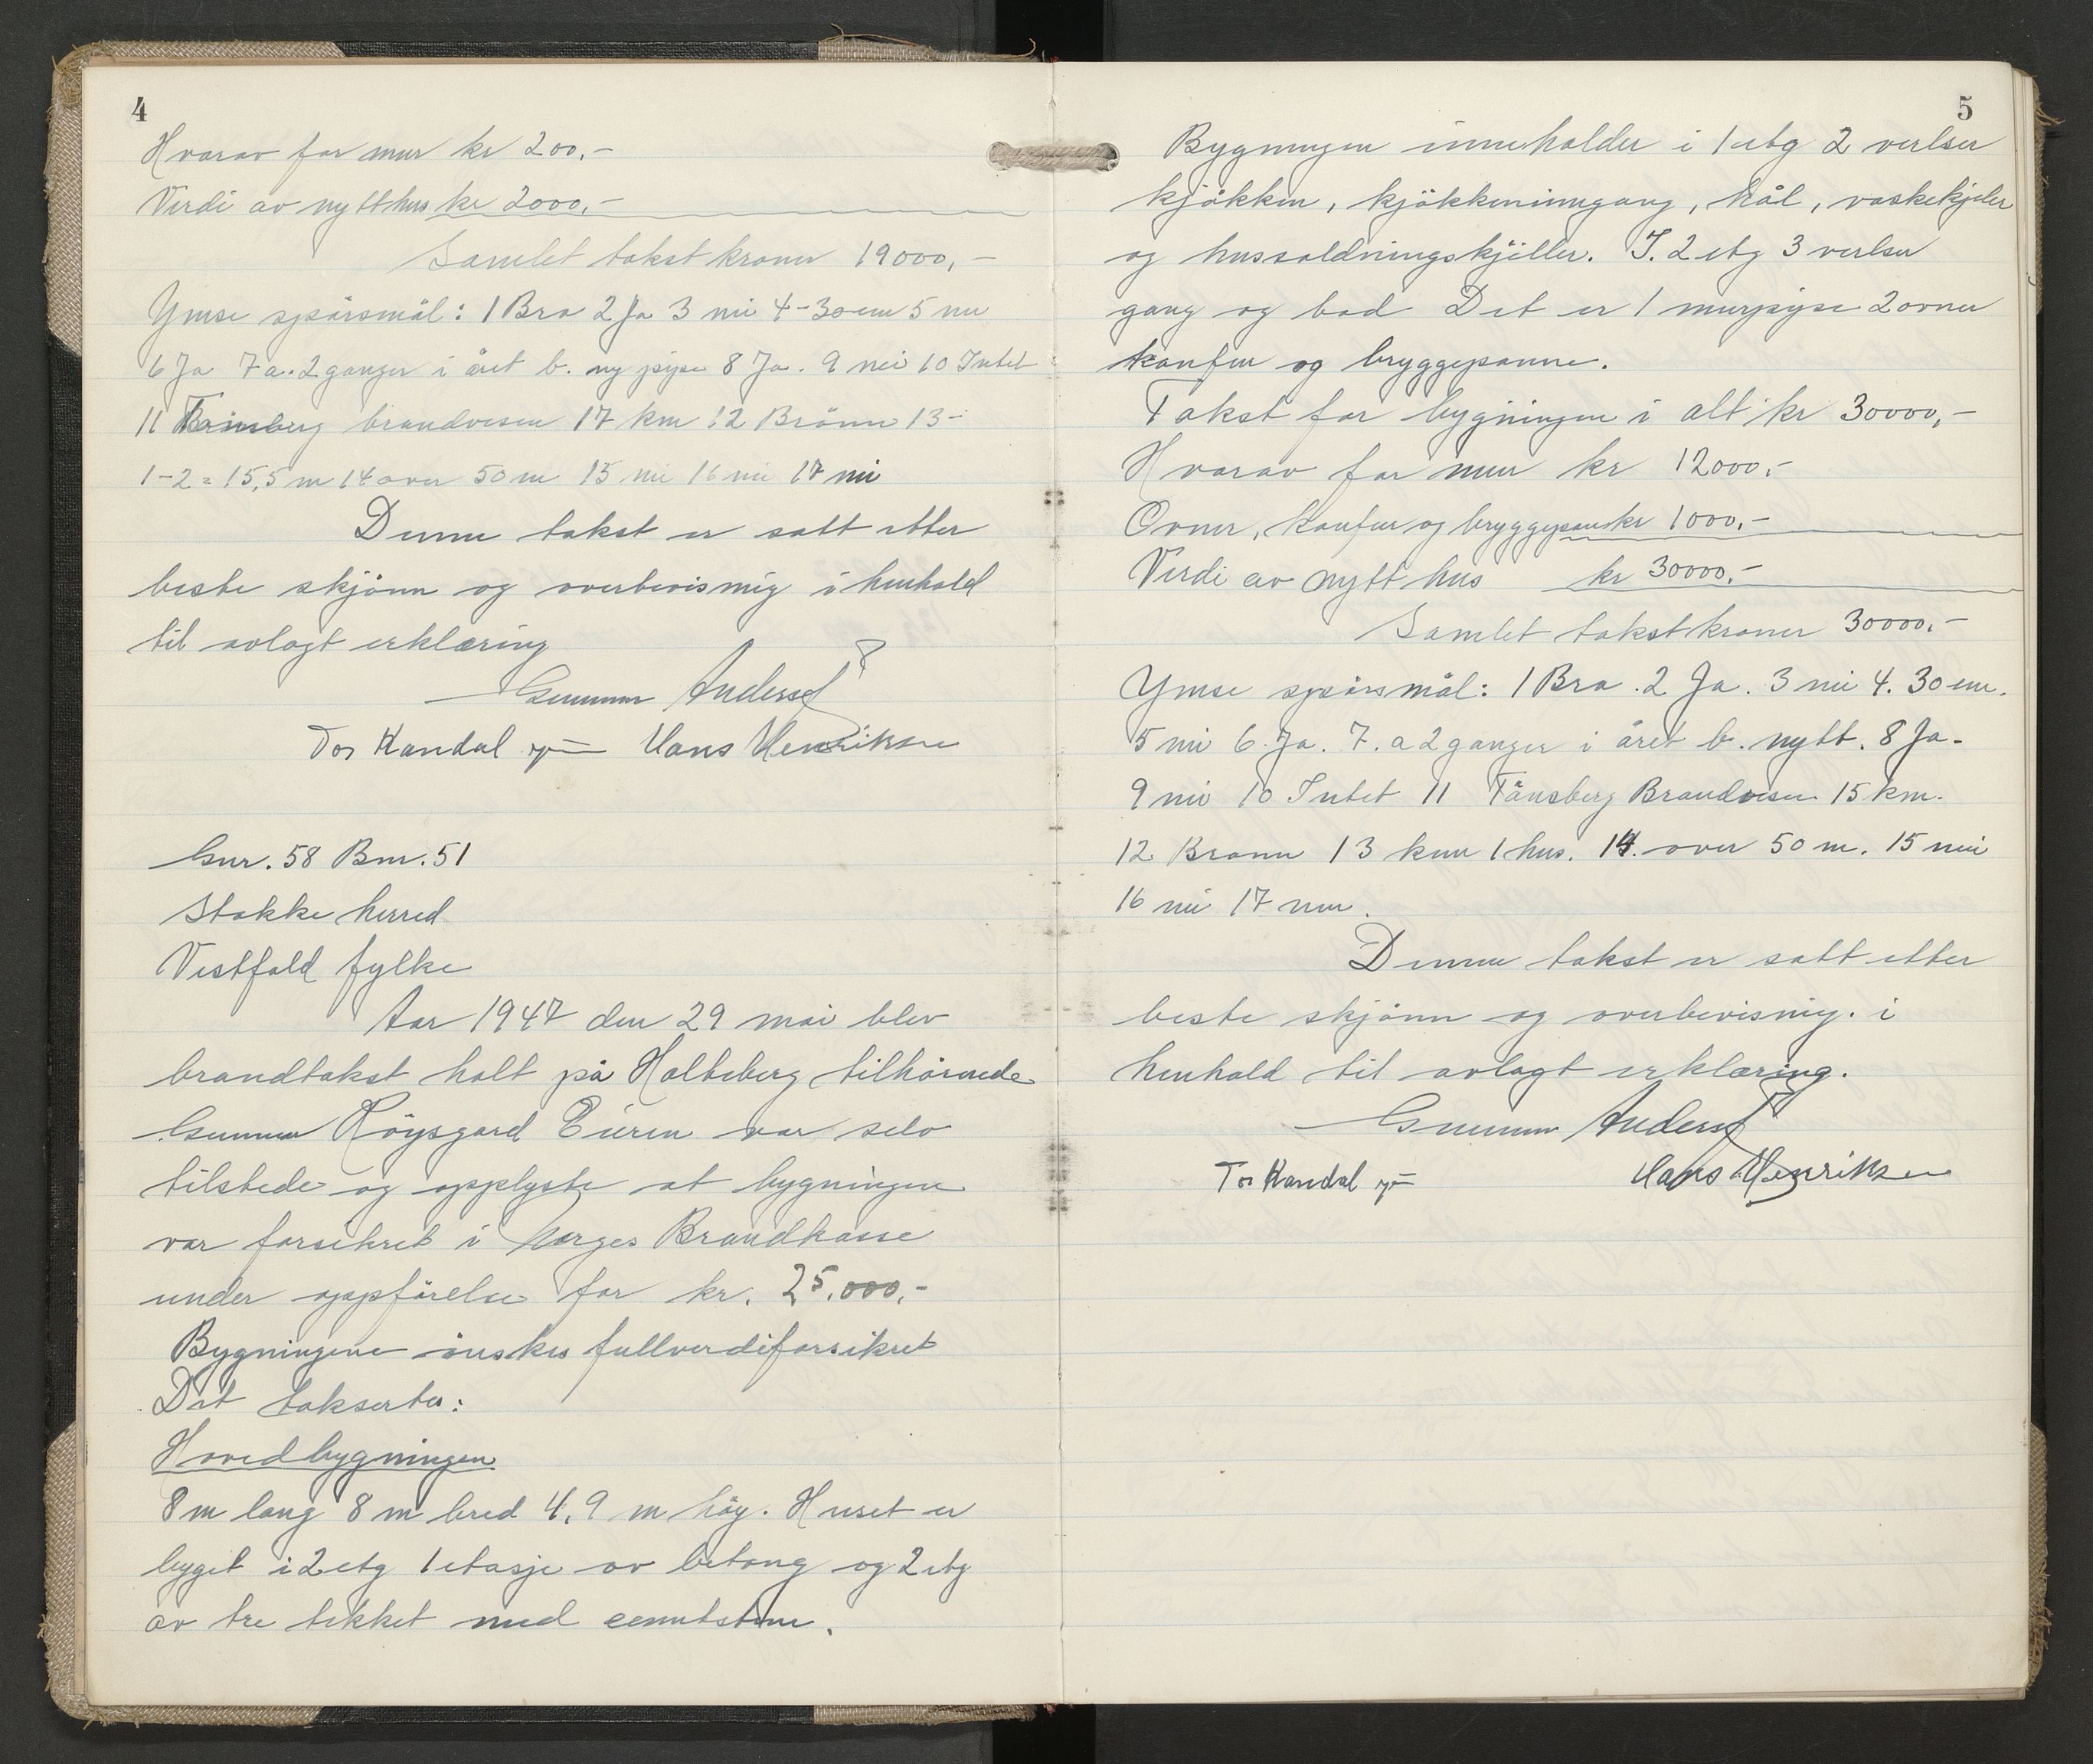 4
Hvorav for mur kr 200,-
Verdi av nytt hus kr 2000,-
Samlet takst kroner 19000,-
Ymse spörsmål: 1 Bra 2 Ja 3 nei 4-30 cm 5 nei
6 Ja 7 a. 2 ganger i året b. ny pipe 8 Ja. 9 nei 10 Intet
11 Tönsberg brandvesen 17 km 12 Brönn 13-
1-2 = 15,5 m 14 over 50 m 15 nei 16 nei 17 nei
Denne takst er satt etter
beste skjönn og overbevisnig i henhold
til avlagt erklæring
Gunnar Anders
Tor Kandal Hans Henriksen
Gnr. 58 Bnr. 51
Stokke herred
Vestfold fylke
Aar 1947 den 29 mai blev
brandtakst holt på Holteberg tilhörende
Gunnar Röysgard Eieren var selv
tilstede og opplyste at bygningen
var forsikret i Norges Brandkasse
under oppförelse for kr. 25.000,-
Bygningene önskes fullverdiforsikret
Det taksertes:
Hovedbygningen
8 m lang 8 m bred 4,9 m höy. Huset er
byget i 2 etg 1 etasje av betong og 2 etg
av tre tekket med cementsten.
5
Bygningen inneholder i 1 etg 2 verlser
kjökken, kjökkeninngang, hål, vaskekjeler
og hussoldningskjeller. I. 2 etg 3 verlser
gang og bad Det er 1 murpipe 2 ovner
komfur og bryggepanne.
Takst for bygningen i alt kr 30000,-
Hvorav for mur kr 12000,-
Ovner, komfur og bryggepan kr 1000,-
Verdi av nytt hus kr 30000,-
Samlet takst kroner 30000,-
Ymse spörsmål: 1 Bra. 2 Ja. 3 nei 4. 30 cm.
5 nei 6. Ja. 7. a 2 ganger i året b. nytt. 8 Ja-
9 nei 10 Intet 11 Tönsberg Brandvesen 15 km.
12 Brönn 13 kun 1 hus. 14. over 50 m. 15 nei
16 nei 17 nei.
Denne takst er satt etter
beste skjönn og overbevisnig. i
henhold til avlagt erklæring.
Gunnar Anders
Tor Kandal Hans Henriksen